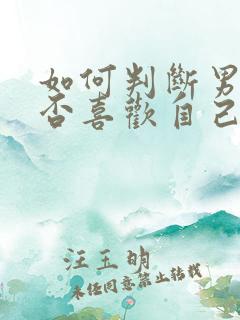 如何判斷男
否喜歡自己
汪玉明
未经同意禁止转载